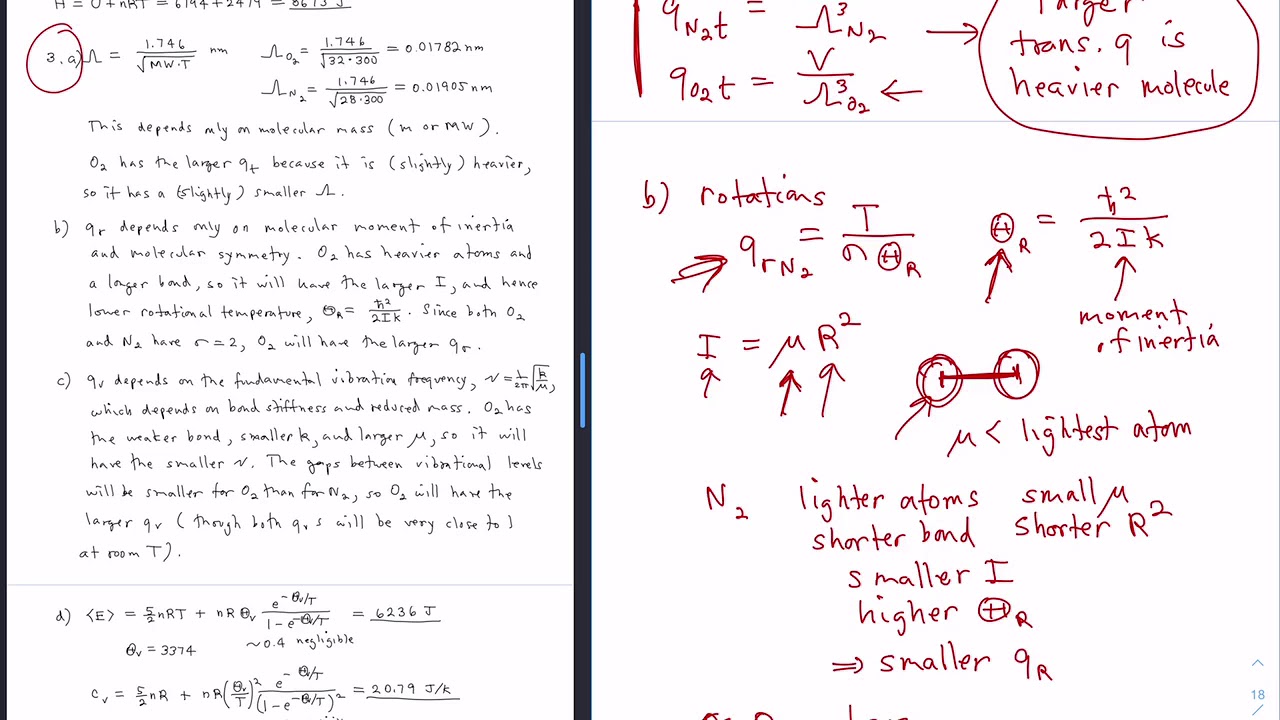 H = U + nRT = 6194 + 2479 = 8673 J
3. a) Λ = 1.746 / √MW·T nm
Λ O2 = 1.746 / √32·300 = 0.01782 nm
Λ N2 = 1.746 / √28·300 = 0.01905 nm
This depends only on molecular mass (m or MW).
O2 has the larger qt because it is (slightly) heavier,
so it has a (slightly) smaller Λ.
b) qr depends only on molecular moment of inertia
and molecular symmetry. O2 has heavier atoms and
a longer bond, so it will have the larger I, and hence
lower rotational temperature, ΘR = ħ²/2Ik. Since both O2
and N2 have σ=2, O2 will have the larger qr.
c) qv depends on the fundamental vibration frequency, ν = 1/2π √k/μ,
which depends on bond stiffness and reduced mass. O2 has
the weaker bond, smaller k, and larger μ, so it will
have the smaller ν. The gaps between vibrational levels
will be smaller for O2 than for N2, so O2 will have the
larger qv (though both qvs will be very close to 1
at room T).
d) ⟨E⟩ = 5/2 nRT + nRΘv e^-Θv/T / 1-e^-Θv/T = 6236 J
Θv = 3374
~0.4 negligible
Cv = 5/2 nR + nR(Θv/T)² e^-Θv/T / (1-e^-Θv/T)² = 20.79 J/K
qN2t = V / Λ³N2
larger
trans. q is
heavier molecule
qO2t = V / Λ³O2
b) rotations
qrN2 = T / σ ΘR
ΘR = ħ² / 2Ik
moment
of inertia
I = μR²
μ < lightest atom
N2 lighter atoms small μ
shorter bond shorter R²
smaller I
higher ΘR
⇒ smaller qR
18